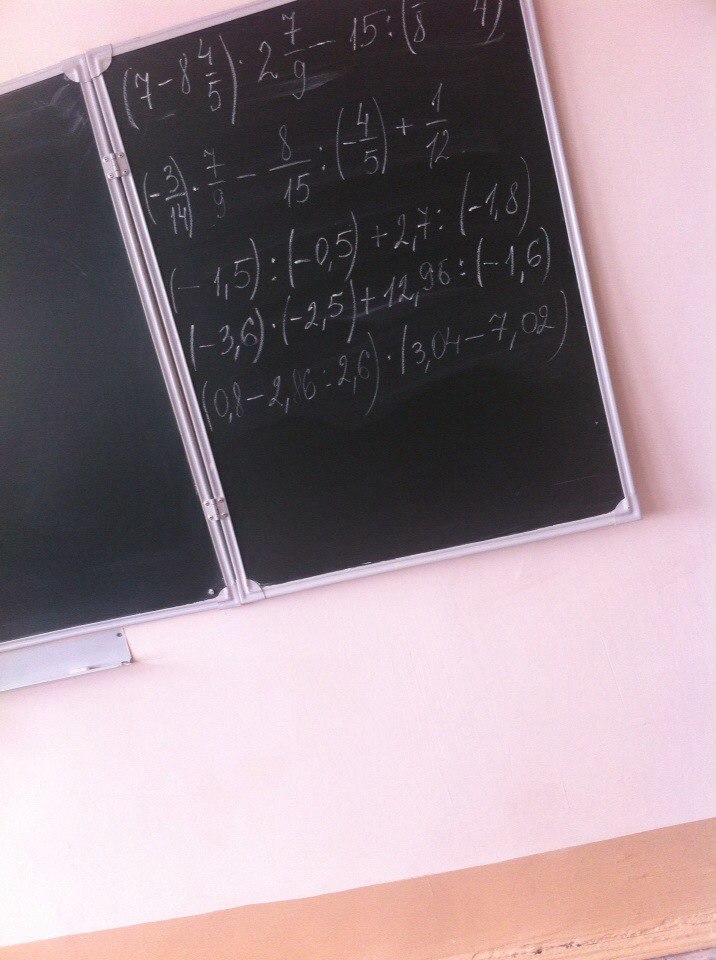 (7 - 8 4/5) · 2 7/9 - 15 : ( /8 4)
(-3/14) · 7/9 - 8/15 : (-4/5) + 1/12
(-1,5) : (-0,5) + 2,7 : (-1,8)
(-3,6) · (-2,5) + 12,96 : (-1,6)
(0,8 - 2,86 : 2,6) · (3,04 - 7,02)